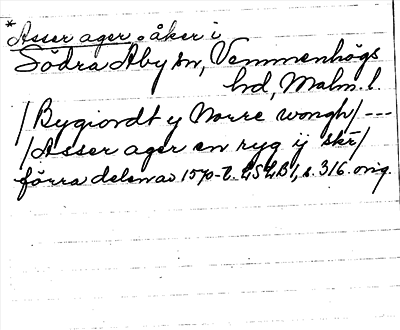 *Asser ager. åker i
Södra Åby sn, Vemmenhögs
hd, Malm. l.
/Bygiordt y Norre wongh/ ---
/Asser ager en ryg ij skr/
förra delen av 1570-t. LSLB1, s. 316. orig.